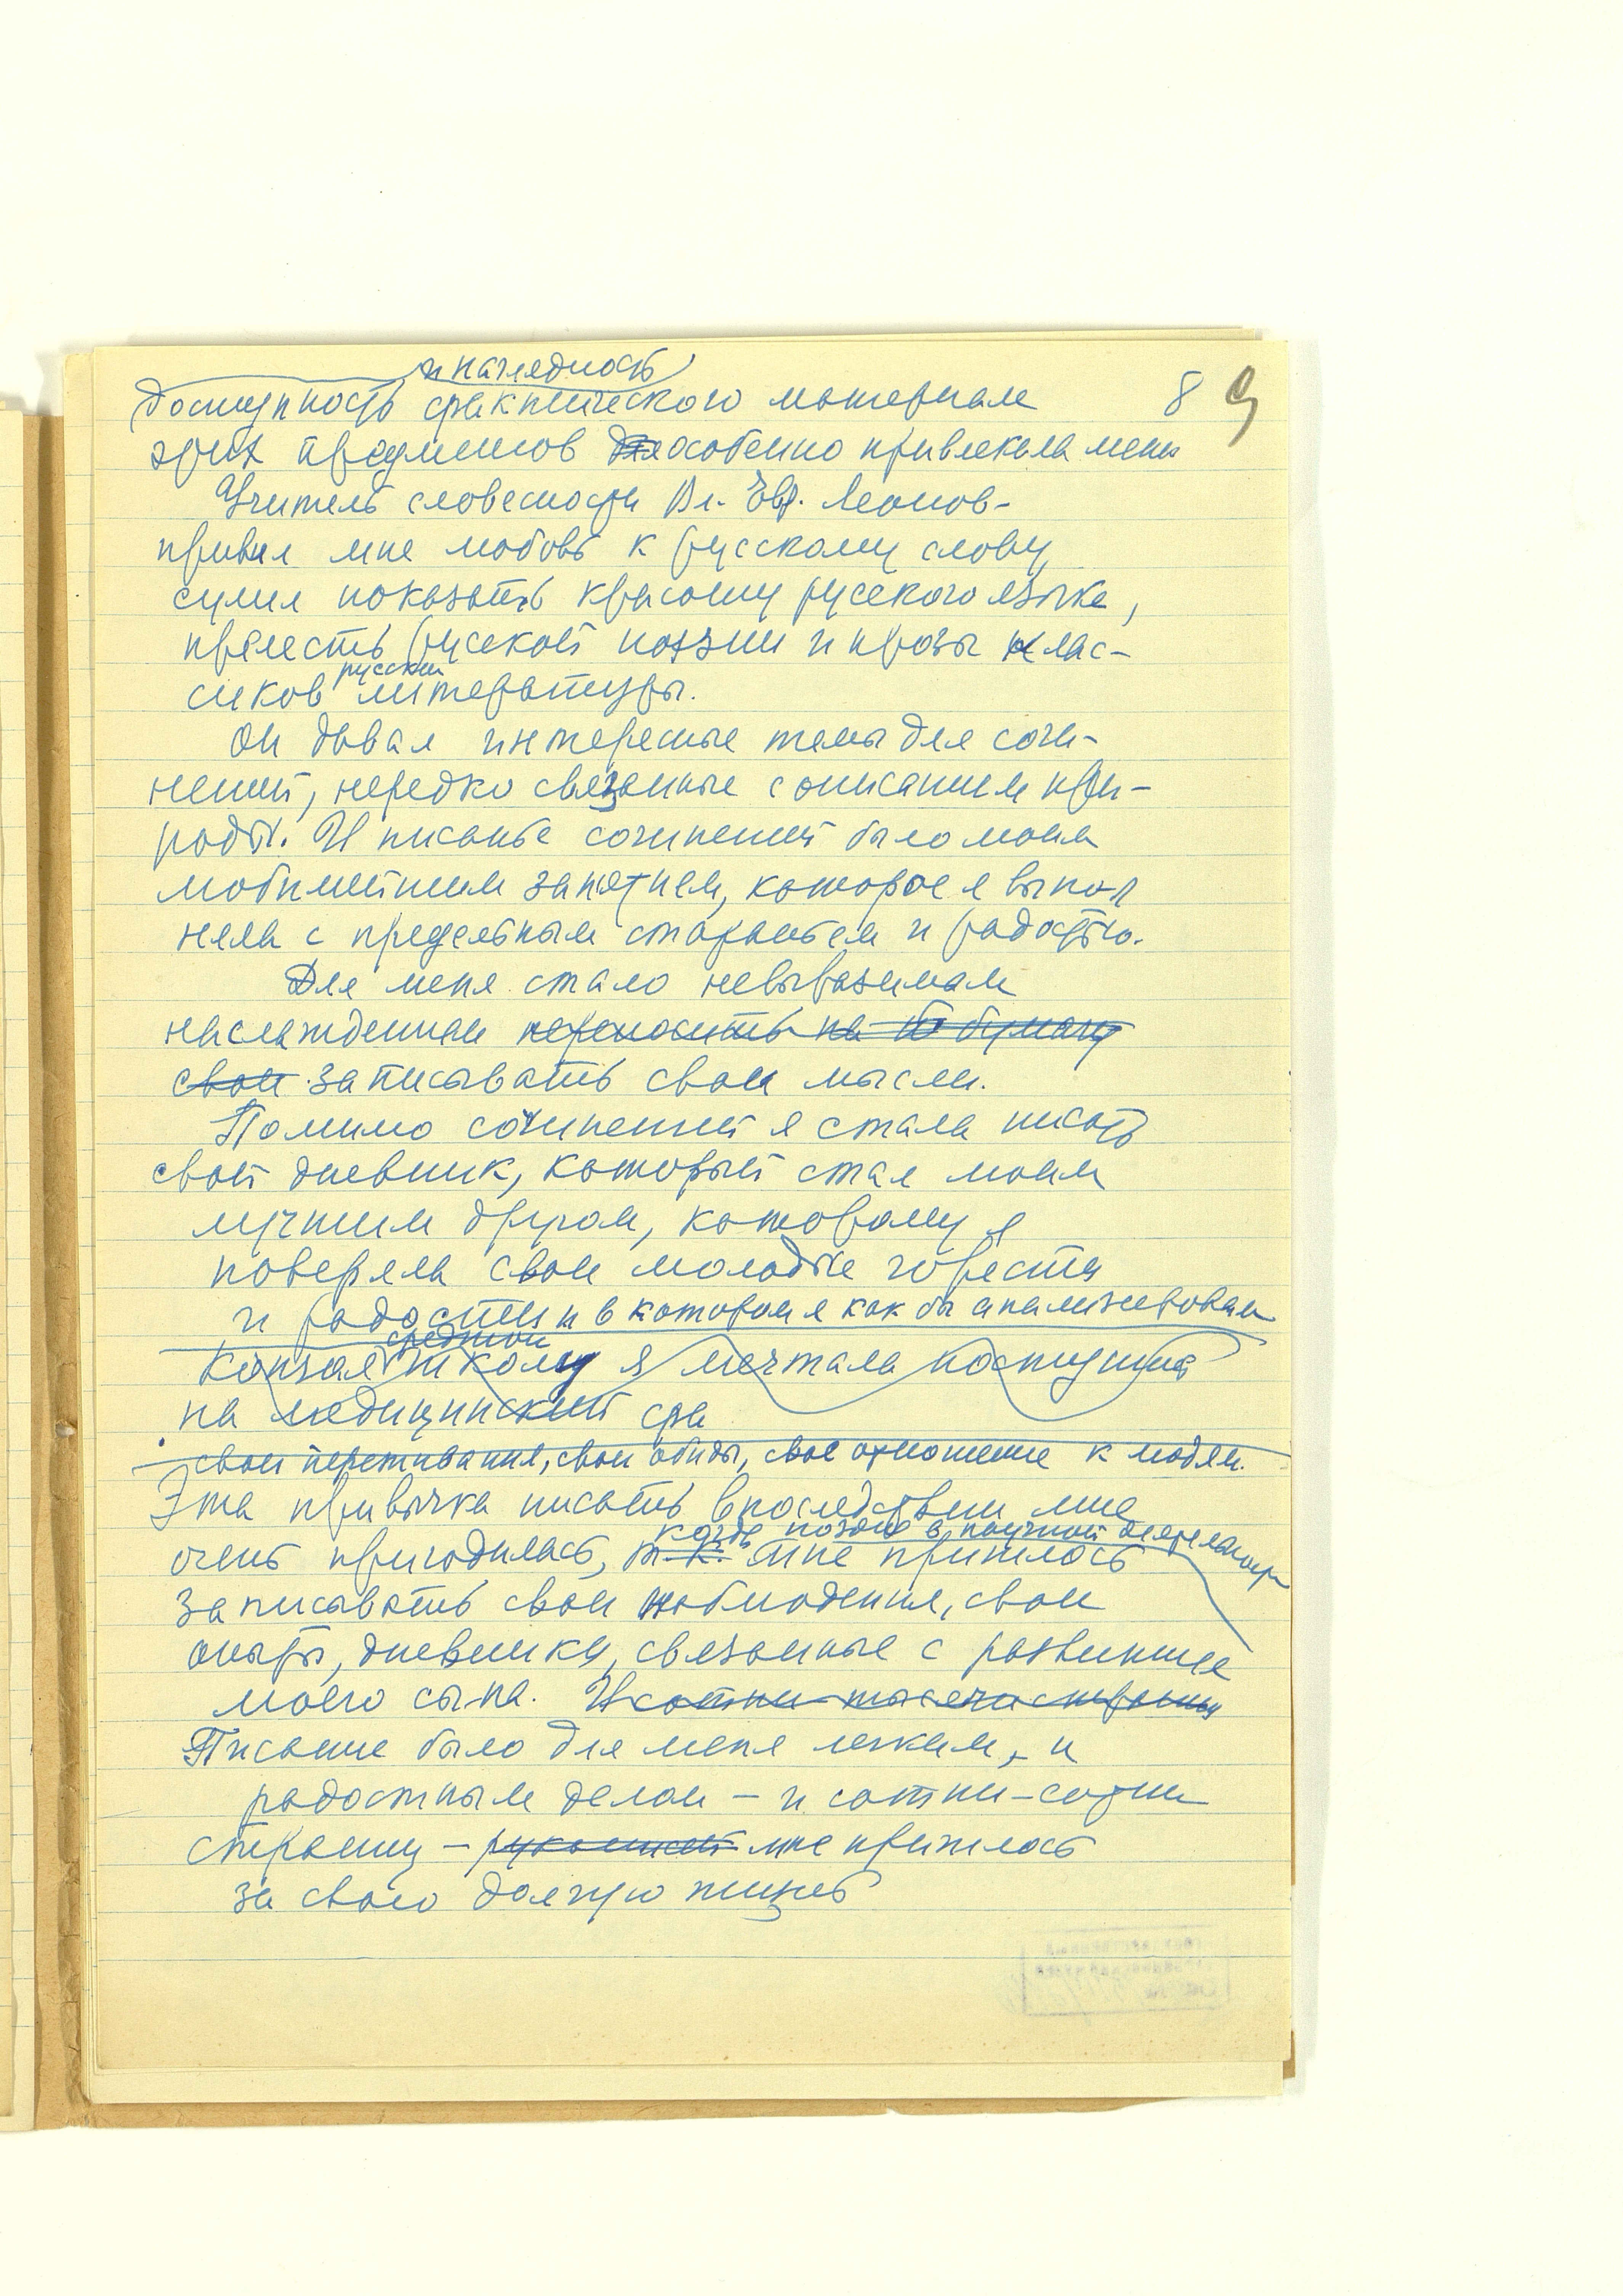 и наглядность
Доступность фактического материала 8 9
этих предметов для особенно привлекала меня
Учитель словесности Вл. Евг. Леонов-
привил мне любовь к русскому слову,
сумел показать красоту русского языка,
прелесть русской поэзии и прозы клас-
русской
сиков литературы.
Он давал интересные темы для сочи-
нений, нередко связанные с описанием при-
роды. И писанье сочинений было моим
любимейшим занятием, которое я выпол
няла с предельным стараньем и радостью.
Для меня стало невыразимым
наслаждением переносить на бумагу
свои записывать свои мысли.
Помимо сочинений я стала писать
свой дневник, который стал моим
лучшим другом, которому я
поверяла свои молодые горести
и радости и в котором я как бы анализировала
средnюю
Кончая школу я мечтала поступить
на медицинский фа
свои переживания, свои обиды, свое отношение к людям.
Эта привычка писать впоследствии мне
когда позднее в научной деятельности
очень пригодилась, т.к. мне пришлось
записывать свои наблюдения, свои
опыты, дневники, связанные с развитием
моего сына. И сотни-тысячи страниц
Писание было для меня легким, и
радостным делом – и сотни-сотни
страниц – рукописей мне пришлось
за свою долгую жизнь